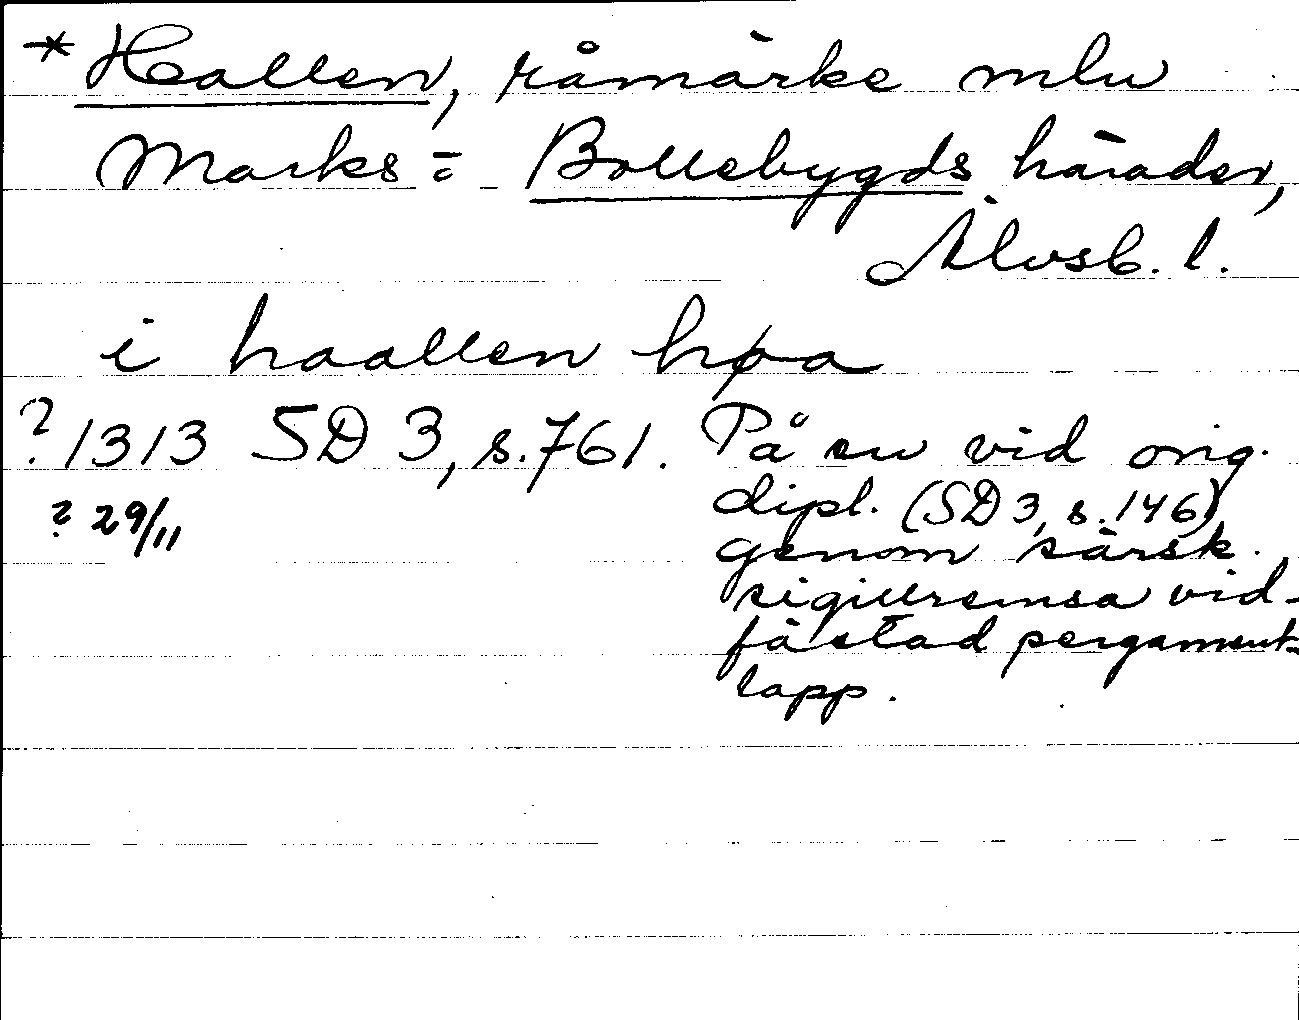 * Hallen, råmärke mlu
Marks= Bollebygds härader,
Älvsb. l.
i haallen høa
? 1313 SD 3, s. 761. På en vid orig.
? 29/11 dipl. (SD 3, s. 146)
genom särsk.
sigillremsa vid-
fästad pergament-
lapp.